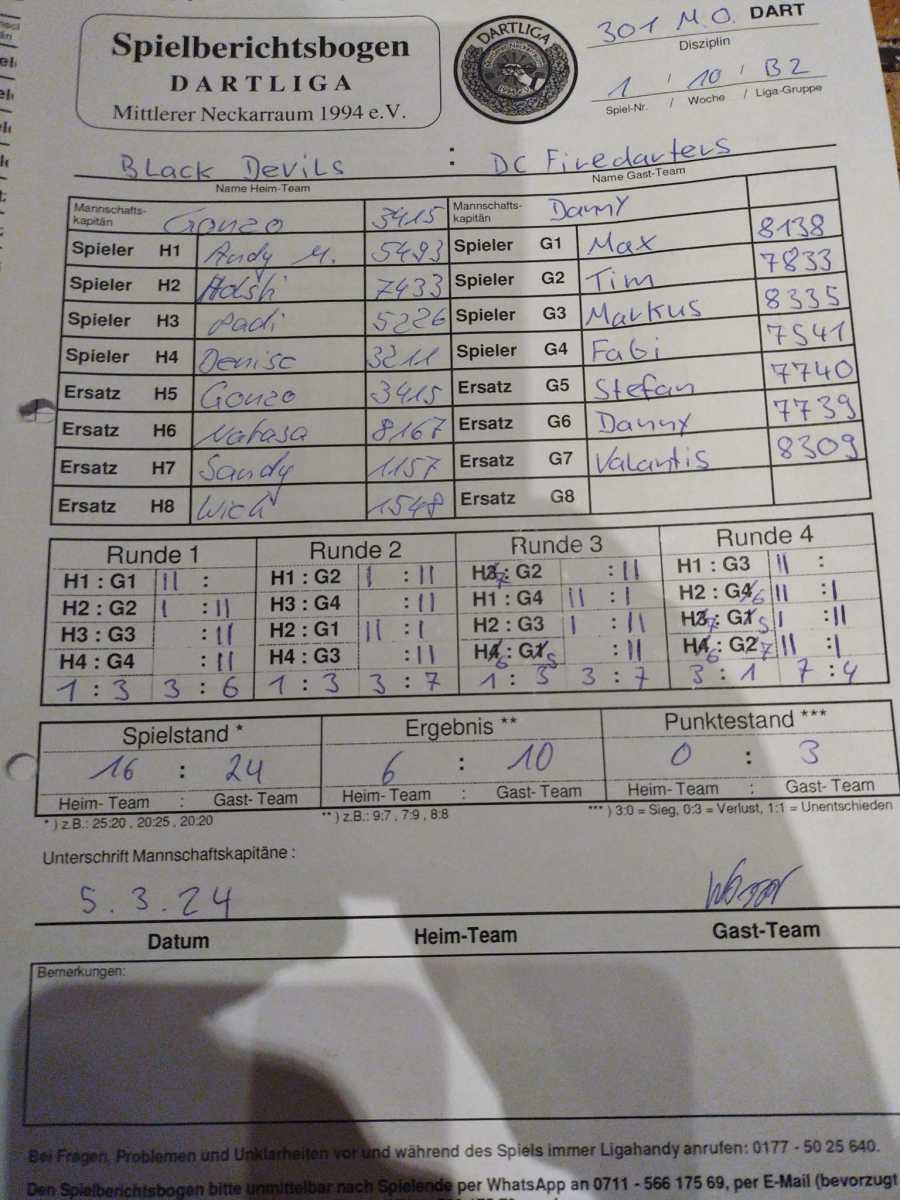 Spielberichtsbogen
DARTLIGA
Mittlerer Neckarraum 1994 e.V.
DARTLIGA
301 M.O. DART
Disziplin
1 / 10 / B2
Spiel-Nr. / Woche / Liga-Gruppe
Black Devils : DC Firedarters
Name Heim-Team Name Gast-Team
Mannschafts-kapitän Gonzo 3415 Mannschafts-kapitän Danny
Spieler H1 Andy M. 5493 Spieler G1 Max 8138
Spieler H2 7433 Spieler G2 Tim 7833
Spieler H3 Padi 5226 Spieler G3 Markus 8335
Spieler H4 Denise 3211 Spieler G4 Fabi 7541
Ersatz H5 Gonzo 3415 Ersatz G5 Stefan 7740
Ersatz H6 Natasa 8167 Ersatz G6 Danny 7739
Ersatz H7 Sandy 1157 Ersatz G7 Valantis 8309
Ersatz H8 Wich 1548 Ersatz G8
Runde 1 Runde 2 Runde 3 Runde 4
H1 : G1 II : H1 : G2 I : II H7 : G2 : II H1 : G3 II :
H2 : G2 I : II H3 : G4 : II H1 : G4 II : I H2 : G6 II : I
H3 : G3 : II H2 : G1 II : I H2 : G3 I : II H7 : G5 I : II
H4 : G4 : II H4 : G3 : II H6 : G5 : II H6 : G7 II : I
1 : 3 3 : 6 1 : 3 3 : 7 1 : 3 3 : 7 3 : 1 7 : 4
Spielstand * Ergebnis ** Punktestand ***
16 : 24 6 : 10 0 : 3
Heim- Team : Gast- Team Heim- Team : Gast- Team Heim- Team : Gast- Team
* ) z.B.: 25:20 , 20:25 , 20:20 ** ) z.B.: 9:7 , 7:9 , 8:8 *** ) 3:0 = Sieg, 0:3 = Verlust, 1:1 = Unentschieden
Unterschrift Mannschaftskapitäne :
5.3.24
Datum Heim-Team Gast-Team
Bemerkungen:
Bei Fragen, Problemen und Unklarheiten vor und während des Spiels immer Ligahandy anrufen: 0177 - 50 25 640.
Den Spielberichtsbogen bitte unmittelbar nach Spielende per WhatsApp an 0711 - 566 175 69, per E-Mail (bevorzugt